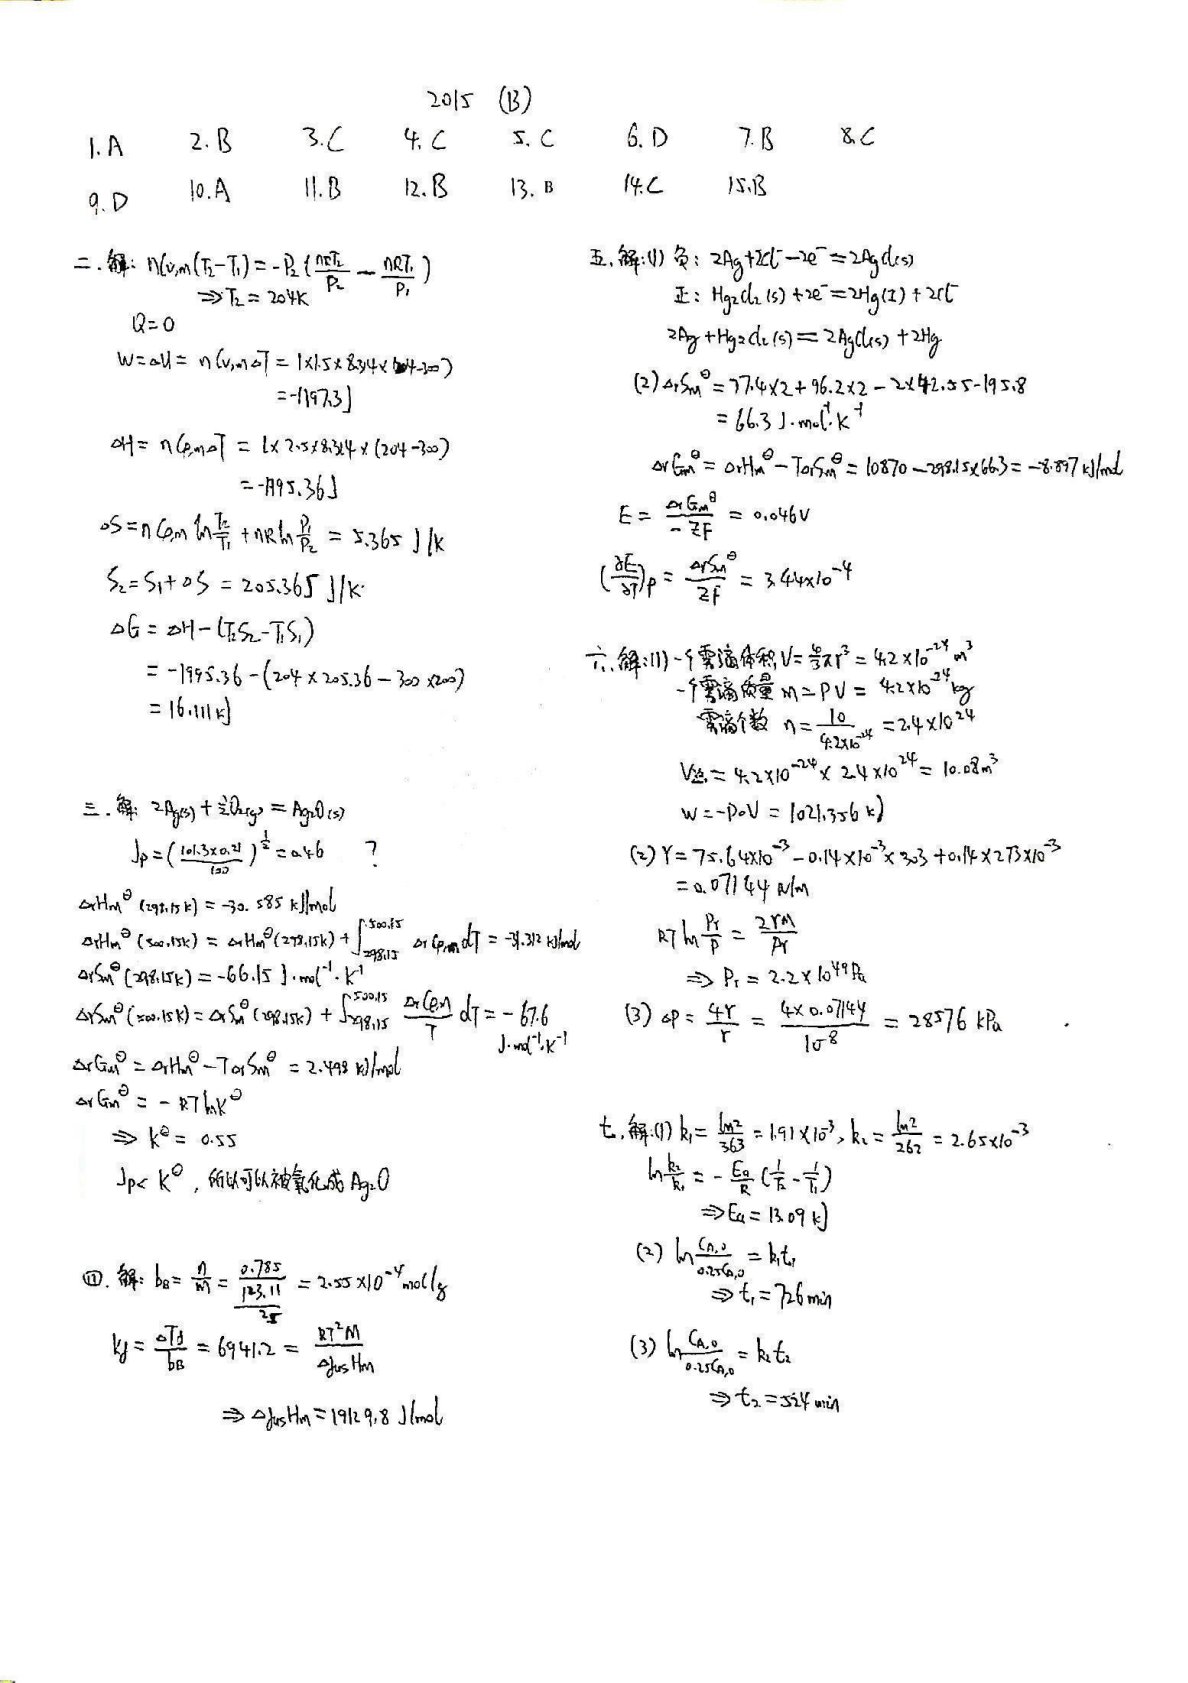 2015 (B)
1.A 2.B 3.C 4.C 5.C 6.D 7.B 8.C
9.D 10.A 11.B 12.B 13.B 14.C 15.B
二.解: nCv,m(T₂-T₁)=-P₂(nRT₂/P₂ - nRT₁/P₁)
⇒T₂=204K
Q=0
W=ΔU=nCv,mΔT=1×1.5×8.314×(204-300)
=-1197.3J
ΔH=nCp,mΔT=1×2.5×8.314×(204-300)
=-1995.36J
ΔS=nCp,m ln T₂/T₁ + nR ln P₁/P₂ = 5.365 J/K
S₂=S₁+ΔS=205.365 J/K
ΔG=ΔH-(T₂S₂-T₁S₁)
=-1995.36-(204×205.36-300×200)
=16.111kJ
三.解: 2Ag(s)+½O₂(g)=Ag₂O(s)
Jp=(101.3×0.21/100)^½=0.46 ?
ΔrHm^θ(298.15K)=-30.585 kJ/mol
ΔrHm^θ(500.15K)=ΔrHm^θ(298.15K)+∫_{298.15}^{500.15} ΔrCp,m dT=-31.312 kJ/mol
ΔrSm^θ(298.15K)=-66.15 J·mol⁻¹·K⁻¹
ΔrSm^θ(500.15K)=ΔrSm^θ(298.15K)+∫_{298.15}^{500.15} ΔrCp,m/T dT=-67.6
J·mol⁻¹·K⁻¹
ΔrGm^θ=ΔrHm^θ-TΔrSm^θ=2.498 kJ/mol
ΔrGm^θ=-RTlnK^θ
⇒K^θ=0.55
Jp<K^θ,所以可以被氧化成Ag₂O
四.解: b_B=n/m=(0.785/123.11)/25=2.55×10⁻⁴mol/g
kf=ΔTf/b_B=6941.2=RT²M/ΔfusHm
⇒ΔfusHm=19129.8 J/mol
五.解:(1) 负: 2Ag+2Cl⁻-2e⁻=2AgCl(s)
正: Hg₂Cl₂(s)+2e⁻=2Hg(l)+2Cl⁻
2Ag+Hg₂Cl₂(s)=2AgCl(s)+2Hg
(2)ΔrSm^θ=77.4×2+96.2×2-2×42.55-195.8
=66.3 J·mol⁻¹·K⁻¹
ΔrGm^θ=ΔrHm^θ-TΔrSm^θ=10870-298.15×66.3=-8.897kJ/mol
E=ΔrGm^θ/-ZF=0.046V
(∂E/∂T)p=ΔrSm^θ/ZF=3.44×10⁻⁴
六.解:(1)一个雾滴体积V=4/3πr³=4.2×10⁻²⁴m³
一个雾滴质量m=ρV=4.2×10⁻²⁴kg
雾滴个数 n=10/4.2×10⁻²⁴=2.4×10²⁴
V总=4.2×10⁻²⁴×2.4×10²⁴=10.08m³
W=-PΔV=1021.356kJ
(2)γ=75.64×10⁻³-0.14×10⁻³×303+0.14×273×10⁻³
=0.07144N/m
RT ln Pr/P=2γM/ρr
⇒Pr=2.2×10⁴⁹Pa
(3)ΔP=4γ/r=4×0.07144/10⁻⁸=28576 kPa
七.解:(1)k₁=ln2/363=1.91×10⁻³,k₂=ln2/262=2.65×10⁻³
ln k₂/k₁=-Ea/R(1/T₂-1/T₁)
⇒Ea=13.09kJ
(2) ln C_A,0/0.25C_A,0=k₁t₁
⇒t₁=726min
(3) ln C_A,0/0.25C_A,0=k₂t₂
⇒t₂=524min